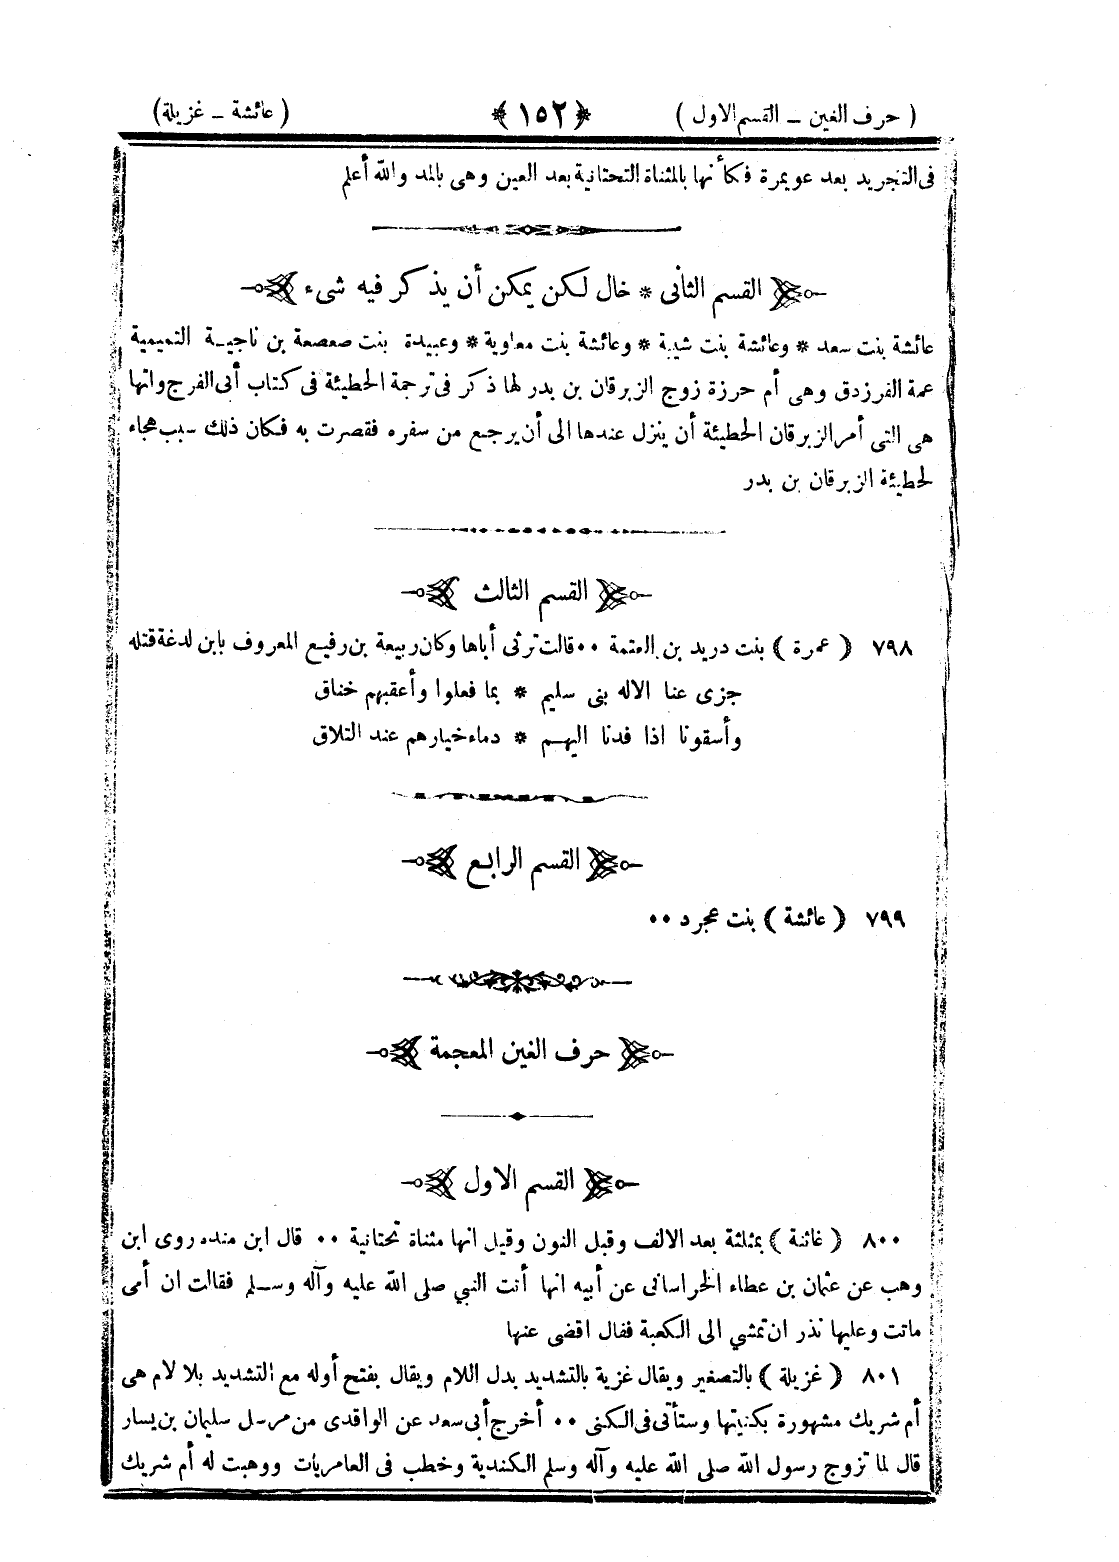 ( حرف الغين – القسم الاول ) ﴿ ١٥٢ ﴾ ( عائشة – غزيلة )
فى التجريد بعد عويمرة فكأنها بالمثناة التحتانية بعد العين وهى بالمد والله أعلم
القسم الثانى * خال لكن يمكن أن يذكر فيه شىء
عائشة بنت سعد * وعائشة بنت شيبة * وعائشة بنت معاوية * وعبيدة بنت صعصعة بن ناجيـة التميمية
عمة الفرزدق وهى أم حرزة زوج الزبرقان بن بدر لها ذكر فى ترجمة الحطيئة فى كتاب أبى الفرج وانها
هى التى أمر الزبرقان الحطيئة أن ينزل عندها الى أن يرجع من سفره فقصرت به فكان ذلك سبب هجاء
لحطيئة الزبرقان بن بدر
القسم الثالث
٧٩٨ ( عمرة ) بنت دريد بن الصمة ٠٠ قالت ترثى أباها وكان ربيعة بن رفيع المعروف بابن لدغة قتله
جزى عنا الاله بنى سليم * بما فعلوا وأعقبهم خناق
وأسقونا اذا قدنا اليهـم * دماء خيارهم عند التلاق
القسم الرابع
٧٩٩ ( عائشة ) بنت عجرد ٠٠
حرف الغين المعجمة
القسم الاول
٨٠٠ ( غائنة ) بمثلثة بعد الالف وقبل النون وقيل انها مثناة تحتانية ٠٠ قال ابن منده روى ابن
وهب عن عثمان بن عطاء الخراسانى عن أبيه انها أتت النبي صلى الله عليه وآله وسـلم فقالت ان أمى
ماتت وعليها نذر ان تمشي الى الكعبة فقال اقضى عنها
٨٠١ ( غزيلة ) بالتصغير ويقال غزية بالتشديد بدل اللام ويقال بفتح أوله مع التشديد بلا لام هى
أم شريك مشهورة بكنيتها وستأتى فى الكنى ٠٠ أخرج أبى سعد عن الواقدى من مرسل سليمان بن يسار
قال لما تزوج رسول الله صلى الله عليه وآله وسلم الكندية وخطب فى العامريات ووهبت له أم شريك